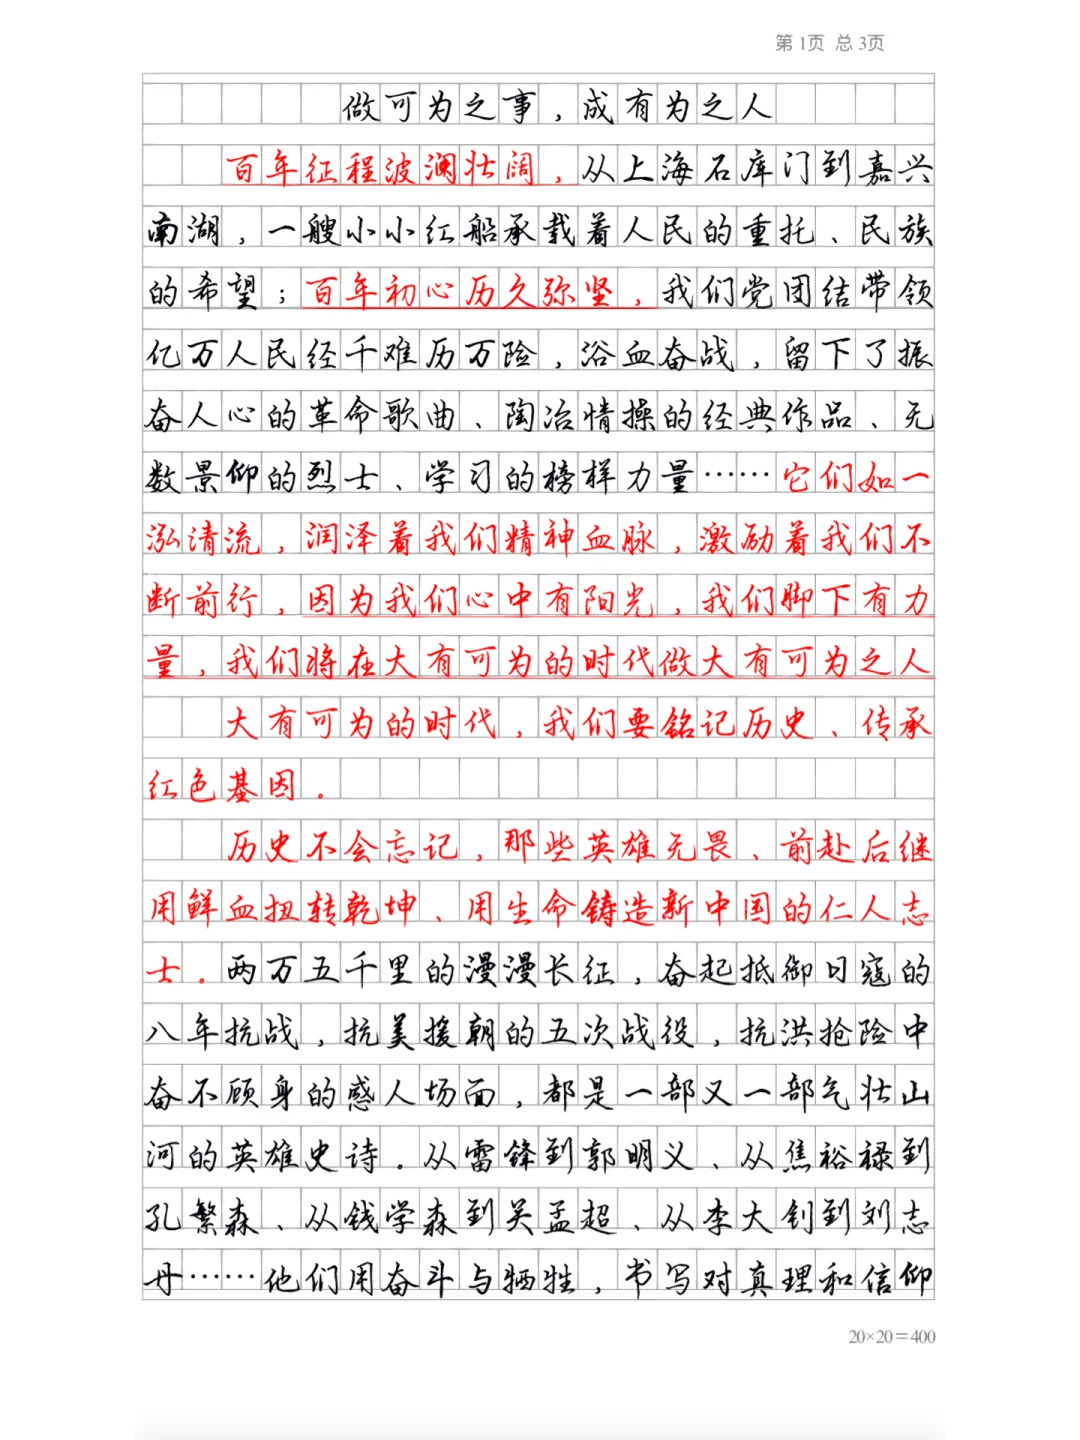 第1页 总3页
做可为之事，成有为之人
百年征程波澜壮阔，从上海石库门到嘉兴
南湖，一艘小小红船承载着人民的重托、民族
的希望；百年初心历久弥坚，我们党团结带领
亿万人民经千难历万险，浴血奋战，留下了振
奋人心的革命歌曲、陶冶情操的经典作品、无
数景仰的烈士、学习的榜样力量……它们如一
泓清流，润泽着我们精神血脉，激励着我们不
断前行，因为我们心中有阳光，我们脚下有力
量，我们将在大有可为的时代做大有可为之人
大有可为的时代，我们要铭记历史、传承
红色基因。
历史不会忘记，那些英雄无畏、前赴后继
用鲜血扭转乾坤、用生命铸造新中国的仁人志
士。两万五千里的漫漫长征，奋起抵御日寇的
八年抗战，抗美援朝的五次战役，抗洪抢险中
奋不顾身的感人场面，都是一部又一部气壮山
河的英雄史诗。从雷锋到郭明义、从焦裕禄到
孔繁森、从钱学森到吴孟超、从李大钊到刘志
丹……他们用奋斗与牺牲，书写对真理和信仰
20×20＝400